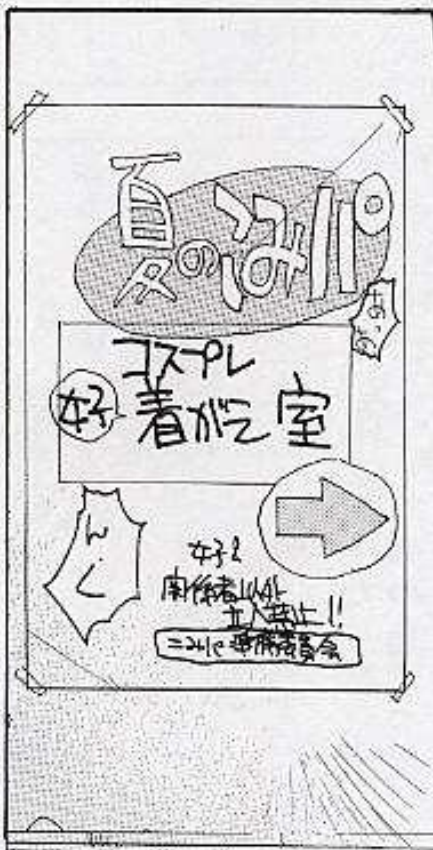 夏のこみパ
コスプレ
女子
着がえ室
ん
く
女子&
関係者以外
立入禁止!!
こみパ準備委員会